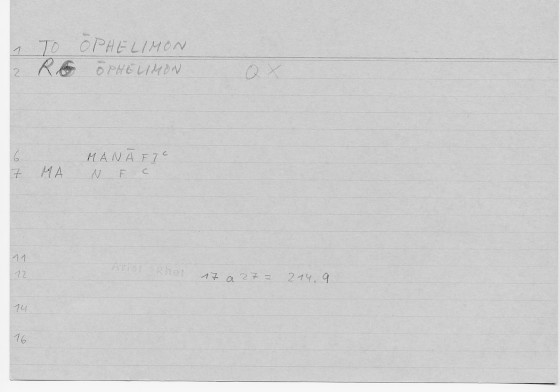 1 TO ŌPHELIMON
2 R ŌPHELIMON OX
6 MANĀFIᶜ
7 MA N F ᶜ
11
12 17 a 27 = 214.9
14
16